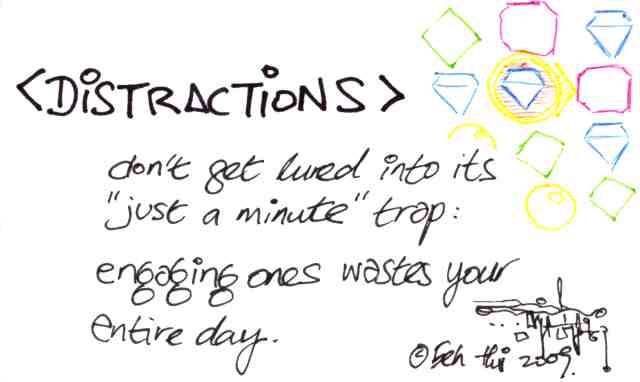 <DiSTRACTiONS>
don't get lured into its
"just a minute" trap:
engaging ones wastes your
entire day.
© 2009.